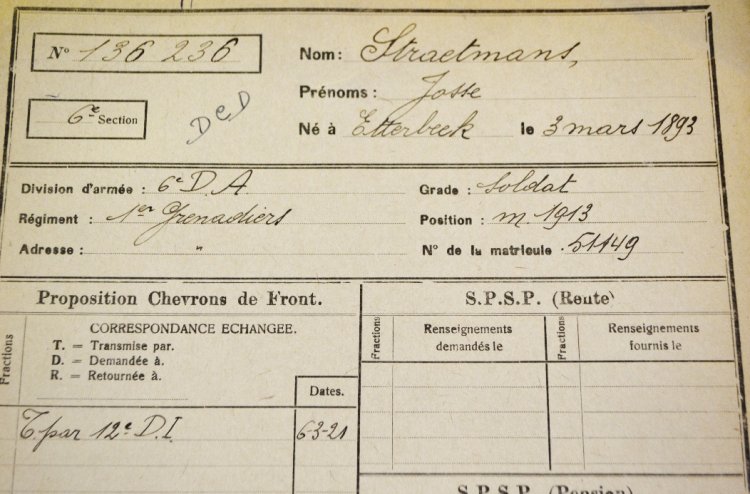 N° 136 236
Nom: Straetmans,
Prénoms: Josse
6e Section
DCD
Né à Etterbeek le 3 mars 1893
Division d'armée : 6e D.A.
Grade : Soldat
Régiment : 1er Grenadiers
Position : m. 1913
Adresse : "
N° de la matricule . 51149
Proposition Chevrons de Front.
S.P.S.P. (Rente)
Fractions
CORRESPONDANCE ECHANGEE.
T. = Transmise par.
D. = Demandée à.
R. = Retournée à.
Dates.
Fractions
Renseignements
demandés le
Fractions
Renseignements
fournis le
T. par 12e D.I.
6-3-21
S.P.S.P. (Pension)